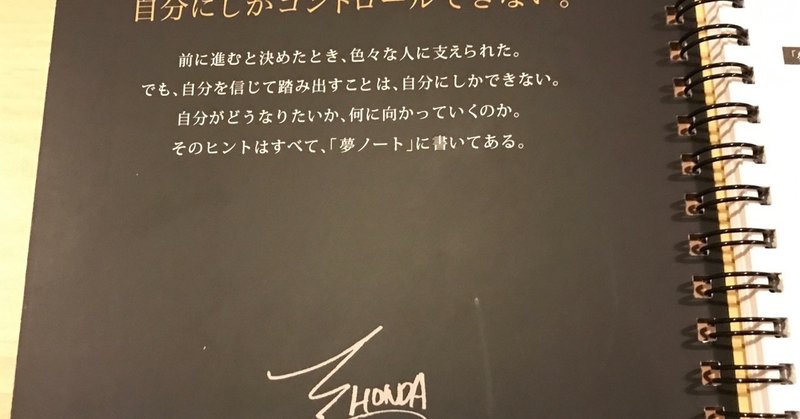 自分にしかコントロールできない。
前に進むと決めたとき、色々な人に支えられた。
でも、自分を信じて踏み出すことは、自分にしかできない。
自分がどうなりたいか、何に向かっていくのか。
そのヒントはすべて、「夢ノート」に書いてある。
HONDA